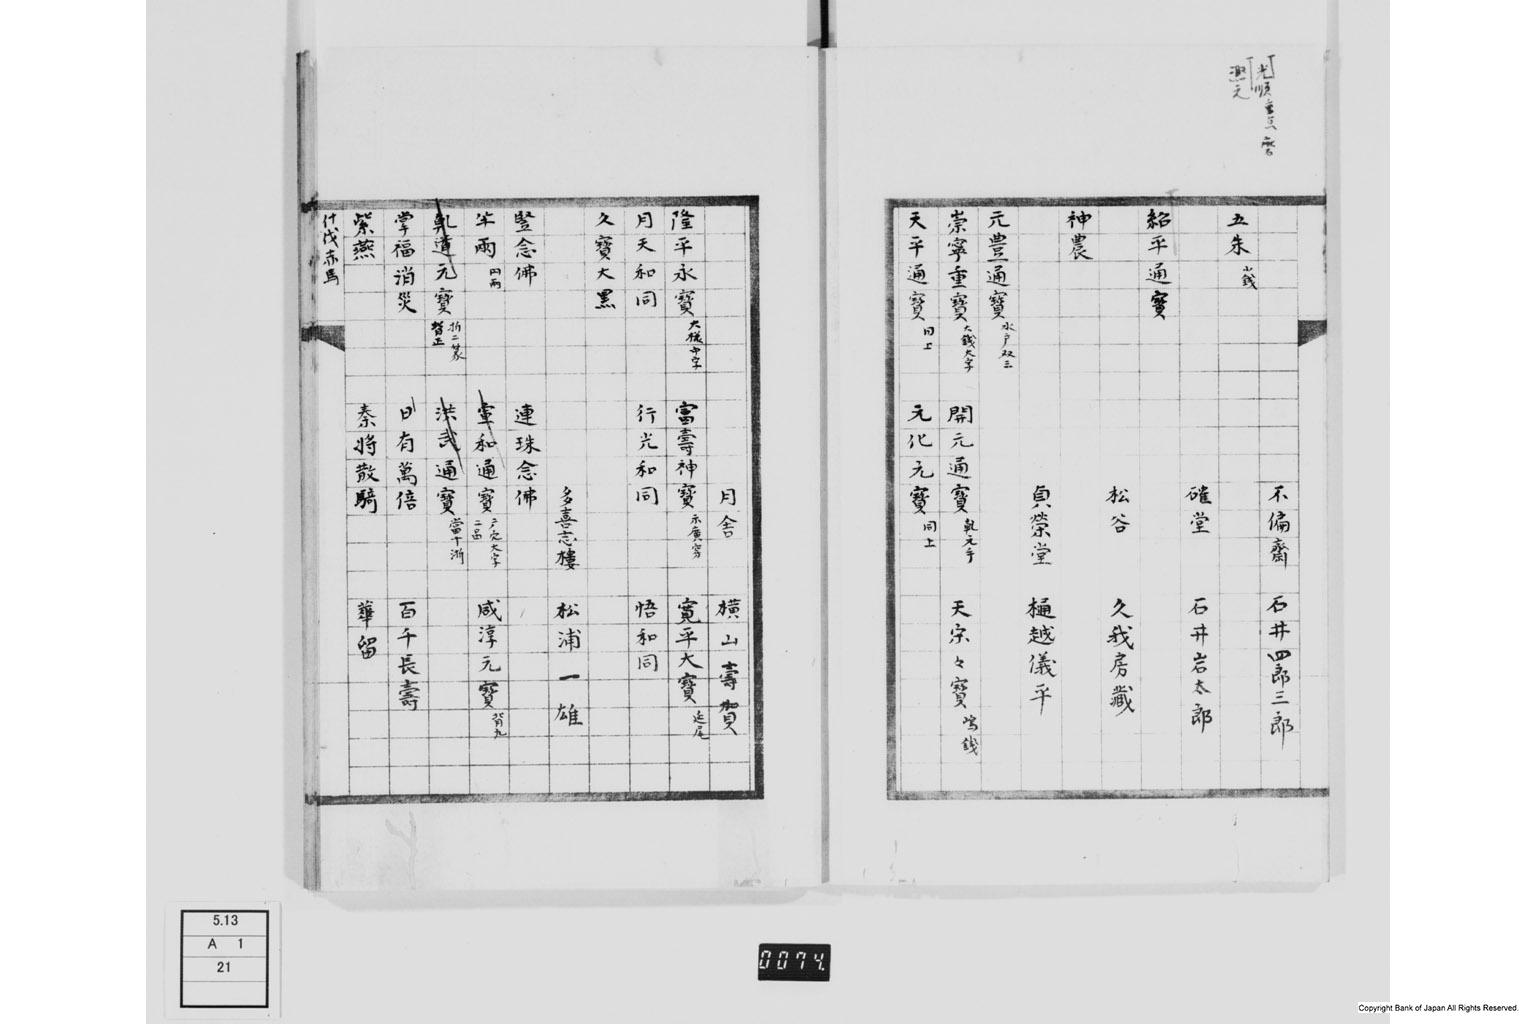 不偏齋 石井四郎三郎
五朱 小錢
確堂 石井岩太郎
紹平通寳
松谷 久我房藏
神農
貞榮堂 樋越儀平
元豊通寳 水戸双三
崇寧重寳 大錢大字 開元通寳 乾元手 天宗々寳 嶋錢
天平通寳 同上 元化元寳 同上
月舎 横山壽賀
隆平永寳 大様中字 富壽神寳 示廣穿 寛平大寳 延尾
月天和同 行光和同 悟和同
久寳大黒
多喜志樓 松浦一雄
豎念佛 連珠念佛
半兩 四兩 宣和通寳 广穴大字 二品 咸淳元寳 背九
乾道元寳 折二篆 背正 洪武通寳 當十浙
掌福消災 日有萬倍 百千長壽
紫燕 秦将散騎 華留
什伐赤馬
5.13
A 1
21
0074
Copyright Bank of Japan All Rights Reserved.